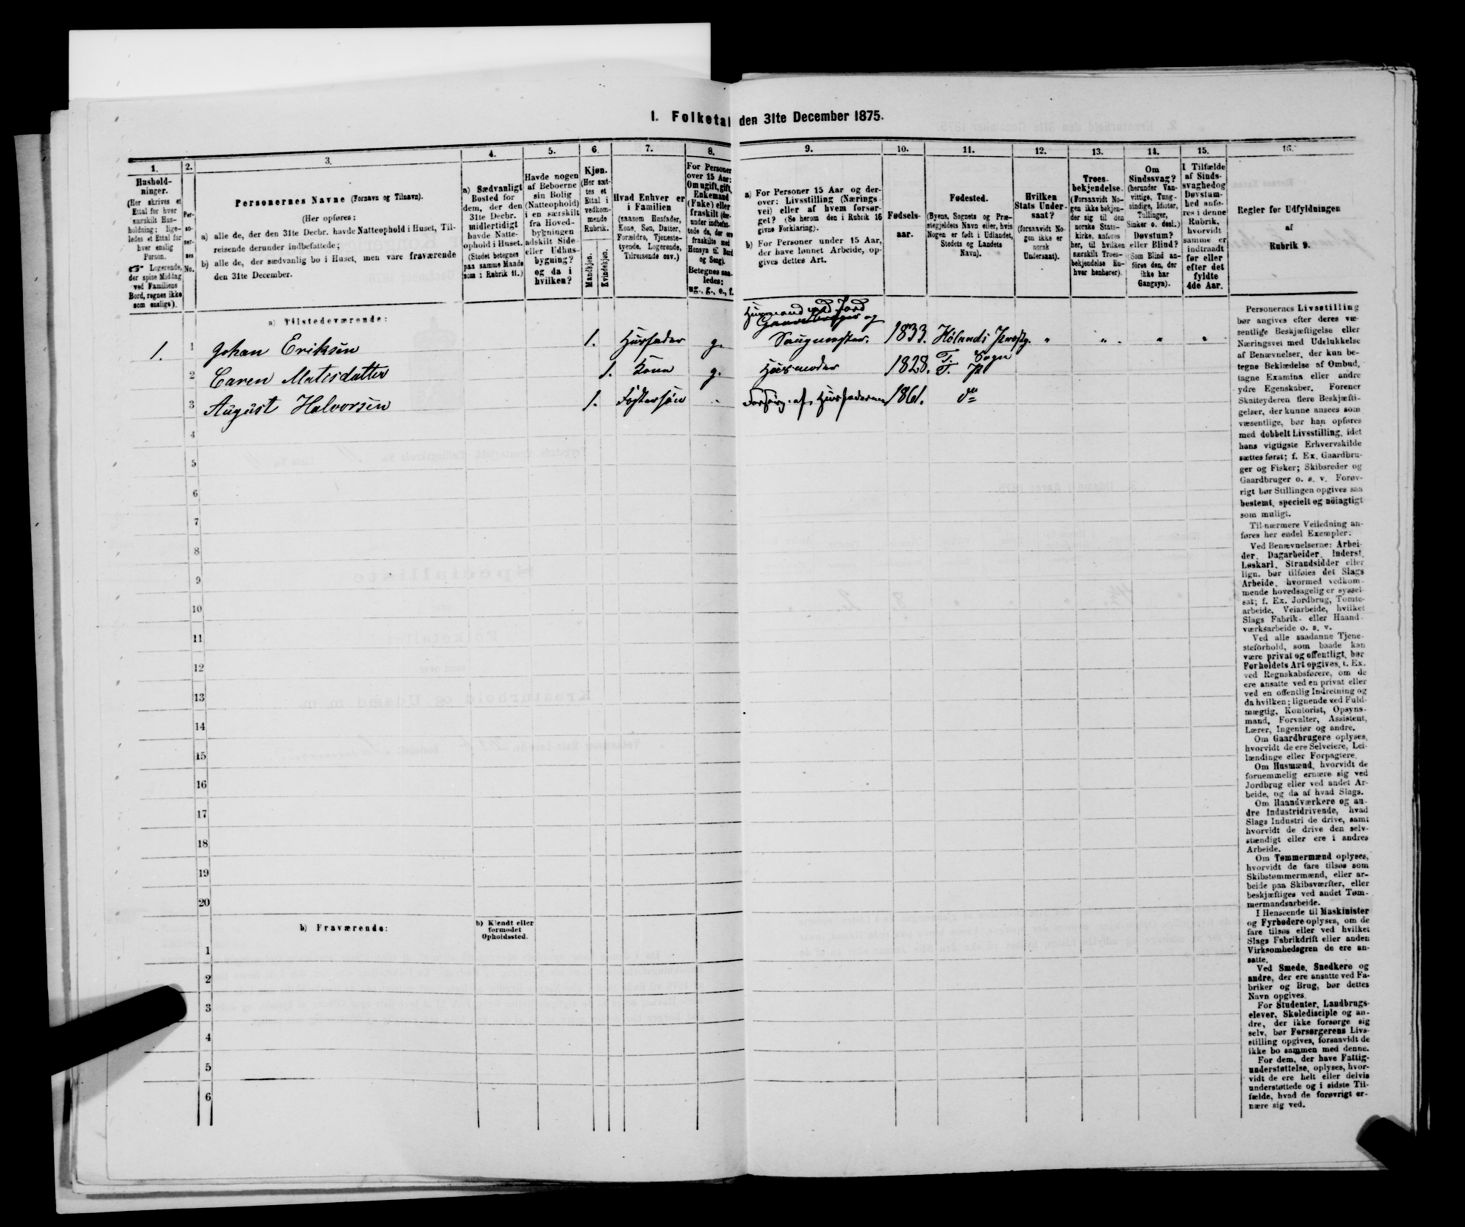 I. Folketal den 31te December 1875.
1.
Hushold-
ninger.
(Her skrives et
Ettal for hver
særskilt Hus-
holdning; lige-
ledes et Ettal for
hver enslig
Person.
☞ Logerende,
der spise Middag
ved Familiens
Bord, regnes ikke
som enslige).
2.
Per-
so-
ner-
nes
No.
3.
Personernes Navne (Fornavn og Tilnavn).
(Her opføres:
a) alle de, der den 31te Decbr. havde Natteophold i Huset, Til-
reisende derunder indbefattede;
b) alle de, der sædvanlig bo i Huset, men vare fraværende
den 31te December.
4.
a) Sædvanligt
Bosted for
dem, der den
31te Decbr.
midlertidigt
havde Natte-
ophold i Huset.
(Stedet betegnes
paa samme Maade
som i Rubrik 11.)
5.
Havde nogen
af Beboerne
sin Bolig
(Natteophold)
i en særskilt
fra Hoved-
bygningen
adskilt Side-
eller Udhus-
bygning?
og da i
hvilken?
6.
Kjøn.
(Her sæt-
tes et
Ettal i
vedkom-
mende
Rubrik.
Mandkjøn.
Kvindekjøn.
7.
Hvad Enhver er
i Familien
(saasom Husfader,
Kone, Søn, Datter,
Forældre, Tjeneste-
tyende, Logerende,
Tilreisende osv.)
8.
For Personer
over 15 Aar:
Om ugift, gift,
Enkemand
(Enke) eller
fraskilt
Betegnes saa-
ledes:
ug., g., e., f.
9.
a) For Personer 15 Aar og der-
over: Livsstilling (Nærings-
vei) eller af hvem forsør-
get? (Se herom den i Rubrik 16
givne Forklaring).
b) For Personer under 15 Aar,
der have lønnet Arbeide, op-
gives dettes Art.
10.
Fødsels-
aar.
11.
Fødested.
(Byens, Sognets og Præ-
stegjeldets Navn eller, hvis
Nogen er født i Udlandet,
Stedets og Landets
Navn).
12.
Hvilken
Stats Under-
saat?
(forsaavidt No-
gen ikke er
norsk
Undersaat).
13.
Troes-
bekjendelse.
(Forsaavidt No-
gen ikke bekjen-
der sig til den
norske Stats-
kirke, anføres
her, til hvilken
særskilt Troes-
bekjendelse En-
hver henhører).
14.
Om
Sindssvag?
(herunder Van-
vittige, Tung-
sindige, Idioter,
Tullinger,
Sinker o. desl.)
Døvstum?
eller Blind?
(Som Blind an-
føres den, der
ikke har
Gangsyn).
15.
I Tilfælde
af Sinds-
svaghed og
Døvstum-
hed anfø-
res i denne
Rubrik,
hvorvidt
samme er
indtraadt
før eller
efter det
fyldte
4de Aar.
16.
Regler for Udfyldningen
af
Rubrik 9.
a) Tilstedeværende:
Husmand med Jord
Gaardbruger og
1. 1 Johan Eriksen 1. Husfader g. Saugmester. 1833. Hølands Præstg. " " " "
T. Sogn
2 Caren Matisdatter 1. Kone g. Husmoder 1828.
3 August Halvorsen 1. Fostersøn " Forsørg. af Husfaderen 1861. do
4
5
6
7
8
9
10
11
12
13
14
15
16
17
18
19
20
b) Fraværende:
b) Kjendt eller
formodet
Opholdssted.
1
2
3
4
5
6
Personernes Livsstilling
bør angives efter deres væ-
sentlige Beskjæftigelse eller
Næringsvei med Udelukkelse
af Benævnelser, der kun be-
tegne Beklædelse af Ombud,
tagne Examina eller andre
ydre Egenskaber. Forener
Skatteyderen flere Beskjæfti-
gelser, der kunne ansees som
væsentlige, bør han opføres
med dobbelt Livsstilling, idet
hans vigtigste Erhvervskilde
sættes først; f. Ex. Gaardbru-
ger og Fisker; Skibsreder og
Gaardbruger o. s. v. Forøv-
rigt bør Stillingen opgives saa
bestemt, specielt og nöiagtigt
som muligt.
Til nærmere Veiledning an-
føres her endel Exempler:
Ved Benævnelserne: Arbei-
der, Dagarbeider, Inderst,
Løskarl, Strandsidder eller
lign. bør tilføies det Slags
Arbeide, hvormed vedkom-
mende hovedsagelig er syssel-
sat; f. Ex. Jordbrug, Tomte-
arbeide, Veiarbeide, hvilket
Slags Fabrik- eller Haand-
værksarbeide o. s. v.
Ved alle saadanne Tjene-
steforhold, som baade kan
være privat og offentligt, bør
Forholdets Art opgives, f. Ex.
ved Regnskabsførere, om de
ere ansatte ved en privat eller
ved en offentlig Indretning og
da hvilken; lignende ved Fuld-
mægtig, Kontorist, Opsyns-
mand, Forvalter, Assistent,
Lærer, Ingeniør og andre.
Om Gaardbrugere oplyses,
hvorvidt de ere Selveiere, Lei-
lændinge eller Forpagtere.
Om Husmænd, hvorvidt de
fornemmelig ernære sig ved
Jordbrug eller ved andet Ar-
beide, og da af hvad Slags.
Om Haandværkere og an-
dre Industridrivende, hvad
Slags Industri de drive, samt
hvorvidt de drive den selv-
stændigt eller ere i andres
Arbeide.
Om Tømmermænd oplyses,
hvorvidt de fare tilsøs som
Skibstømmermænd, eller ar-
beide paa Skibsværfter, eller
beskjæftiges ved andet Tøm-
mermandsarbeide.
I Henseende til Maskinister
og Fyrbødere oplyses, om de
fare tilsøs eller ved hvilket
Slags Fabrikdrift eller anden
Virksomhedsgren de ere an-
satte.
Ved Smede, Snedkere og
andre, der ere ansatte ved Fa-
briker og Brug, bør dettes
Navn opgives.
For Studenter, Landbrugs-
elever, Skoledisciple og an-
dre, der ikke forsørge sig
selv, bør Forsørgerens Livs-
stilling opgives, forsaavidt de
ikke bo sammen med denne.
For dem, der have Fattig-
understøttelse, oplyses, hvor-
vidt de ere helt eller delvis
understøttede og i sidste Til-
fælde, hvad de forøvrigt er-
nære sig ved.